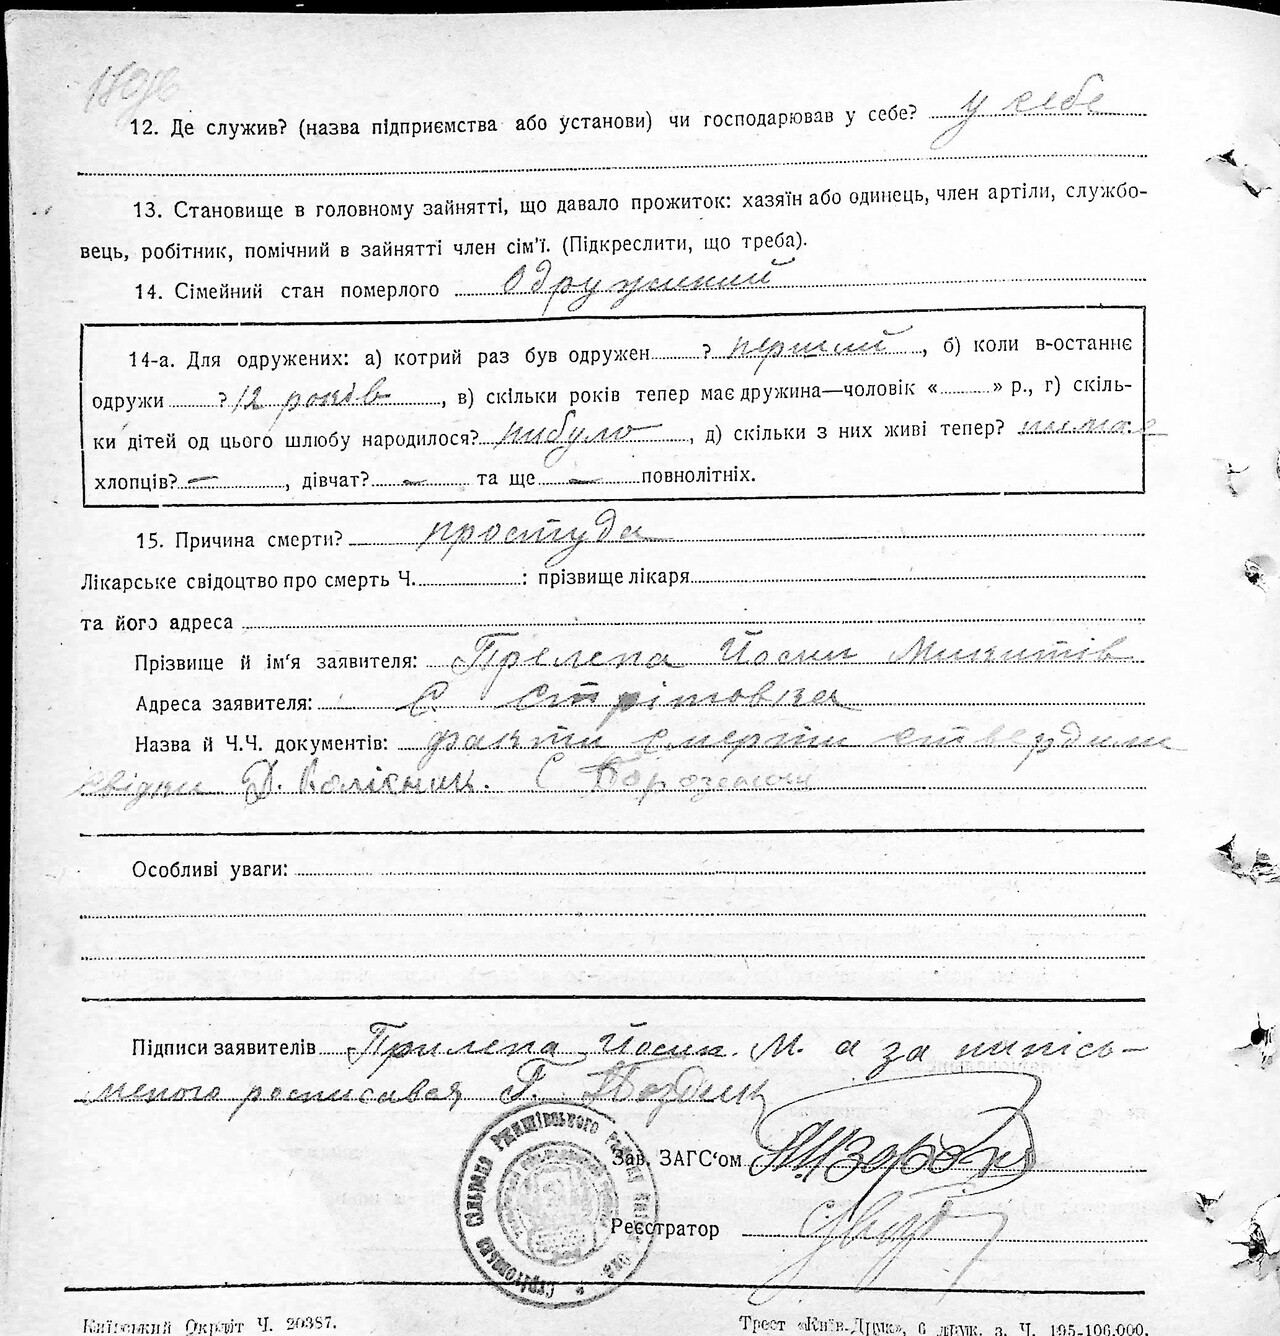 12. Де служив? (назва підприємства або установи) чи господарював у себе? у себе
13. Становище в головному зайнятті, що давало прожиток: хазяїн або одинець, член артіли, службо-
вець, робітник, помічний в зайнятті член сім'ї. (Підкреслити, що треба).
14. Сімейний стан померлого Одружиний
14-а. Для одружених: а) котрий раз був одружен ? перший, б) коли в-останнє
одружи ? 12 років, в) скільки років тепер має дружина—чоловік « » р., г) скіль-
ки дітей од цього шлюбу народилося? нибуло, д) скільки з них живі тепер? нимає
хлопців? —, дівчат? — та ще — повнолітніх.
15. Причина смерти? простуда
Лікарське свідоцтво про смерть Ч. : прізвище лікаря
та його адреса
Прізвище й ім'я заявителя: Прилепа Йосип Микитів
Адреса заявителя: С Стрітовка
Назва й Ч.Ч. документів: факти смерти ствердили
свідки Д. С
Особливі уваги:
Підписи заявителів Прилепа Йосип. М. а за нипісь-
меного росписався Г.
Стрітовська сільрада Ржищівського району
Зав. ЗАГС'ом
Реєстратор
Київський Окрліт Ч. 20387.
Трест «Київ-Друк», 6 друк. з. Ч. 195-106.000.